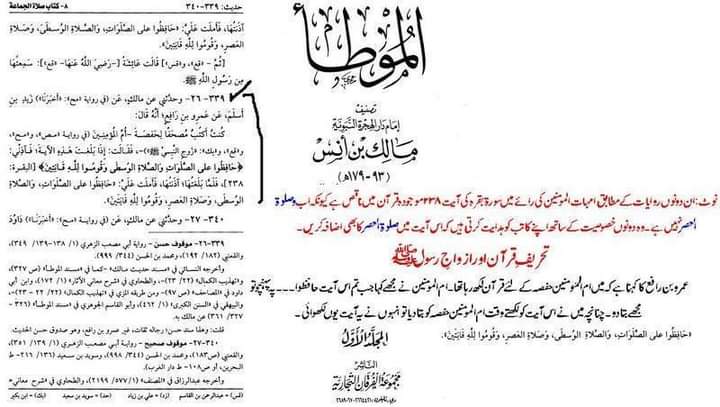 حديث: ٣٣٩-٣٤٠
٨- كتاب صلاة الجماعة
آذَنْتُهَا، فَأَمْلَتْ عَلَيَّ: ﴿حَافِظُوا عَلَى الصَّلَوَاتِ، وَالصَّلَاةِ الْوُسْطَى، وَصَلَاةِ
الْعَصْرِ، وَقُومُوا لِلَّهِ قَانِتِينَ﴾.
[ثُمَّ - «قع»، و«قس»] قَالَتْ عَائِشَةُ [-رَضِيَ اللهُ عَنْهَا- «قع»]: سَمِعْتُهَا
مِنْ رَسُولِ اللَّهِ ﷺ.
٣٣٩- ٢٦- وحدَّثني عن مالكٍ، عَن (في رواية «مح»: «أَخْبَرَنَا») زَيدِ بنِ
أَسلَمَ، عَن عَمرِو بنِ رَافِعٍ؛ أَنَّهُ قَالَ:
كُنتُ أَكتُبُ مُصحَفًا لِحَفصَةَ - أُمِّ المُؤمِنِينَ (في رواية «مص»، و«مح»،
و«قع»: «زَوجِ النَّبِيِّ ﷺ»)-، فَقَالَت: إِذَا بَلَغتَ هَذِهِ الآيَةَ؛ فَآذِنِّي:
﴿حَافِظُوا على الصَّلَوَاتِ وَالصَّلَاةِ الوُسطَى وَقُومُوا لِلَّهِ قَانِتِينَ﴾ [البقرة:
٢٣٨]، فَلَمَّا بَلَغتُهَا؛ آذَنتُهَا، فَأَملَت عَلَيَّ: ﴿حَافِظُوا على الصَّلَوَاتِ، وَالصَّلَاةِ
الوُسطَى، وَصَلَاةِ العَصرِ، وَقُومُوا لِلَّهِ قَانِتِينَ﴾.
٣٤٠- ٢٧- وحدَّثني عن مالكٍ، عَن (في رواية «مح»: «أَخْبَرَنَا») دَاوُدَ
٣٣٩-٢٦- موقوف حسن - رواية أبي مصعب الزهري (١/ ١٣٨-١٣٩/ ٣٤٩)،
والقعنبي (١٨٢/ ١٩٢)، ومحمد بن الحسن (٣٤٤/ ٩٩٩).
قلت: وهذا سند حسن؛ رجاله ثقات، غير عمرو بن رافع، وهو صدوق حسن الحديث.
٣٤٠-٢٧- موقوف صحيح - رواية أبي مصعب الزهري (١/ ١٣٩/ ٣٥١)،
الموطأ
تصنيف
إمام دار الهجرة النبوية
مالك بن أنس
(٩٣-١٧٩هـ)
نوٹ: ان دونوں روایات کے مطابق امہات المومنین کی رائے میں سورۃ بقرہ کی آیت ۲۳۸ موجودہ قرآن میں ناقص ہے کیونکہ اب وصلوۃ
العصر نہیں ہے۔ وہ دونوں خصوصیت کے ساتھ اپنے کاتب کو ہدایت کرتی ہیں کہ اس آیت میں صلوۃ العصر کا بھی اضافہ کریں۔
تحریف قرآن اور ازواج رسول ﷺ
عمرو بن رافع کا کہنا ہے کہ میں ام المومنین حفصہ کے لئے قرآن لکھ رہا تھا۔ ام المومنین نے مجھے کہا جب تم اس آیت حافظوا ۔۔۔۔ پہ پہنچو تو
مجھے بتا دو۔ چنانچہ میں نے اس آیت کو لکھتے وقت ام المومنین حفصہ کو بتا دیا تو انہوں نے یہ یوں لکھوائی۔
﴿حَافِظُوا على الصَّلَوَاتِ، وَالصَّلَاةِ الوُسطَى، وَصَلَاةِ العَصرِ، وَقُومُوا لِلَّهِ قَانِتِينَ﴾.
المجلد الأول
الناشر
مجموعة الفرقان التجارية